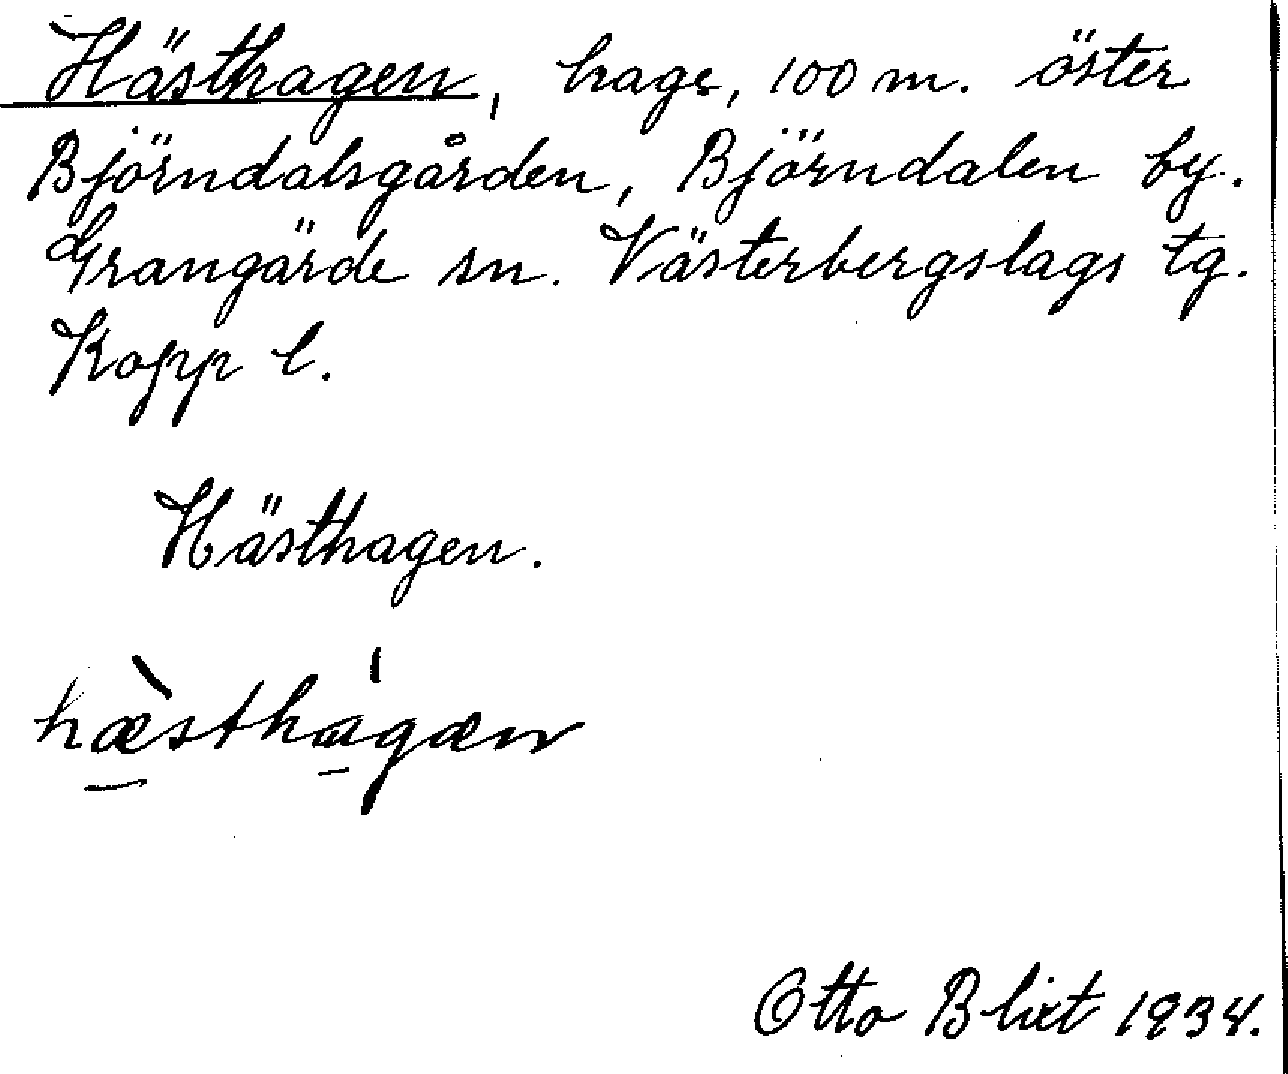 Hästhagen, hage, 100 m. öster
Björndalsgården, Björndalen by.
Grangärde sn. Västerbergslags tg.
Kopp l.
Hästhagen.
hæ̀sthágæn
Otto Blixt 1934.